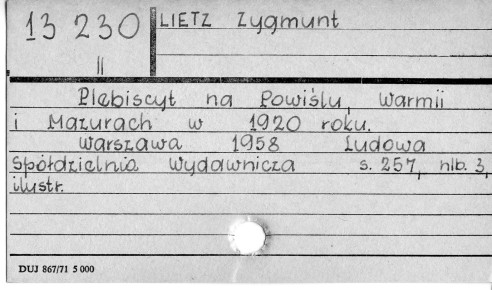 13 230
II
LIETZ Zygmunt
Plebiscyt na Powiślu, Warmii
i Mazurach w 1920 roku.
Warszawa 1958 Ludowa
Spółdzielnia Wydawnicza s. 257, nlb. 3,
ilustr.
DUJ 867/71 5 000